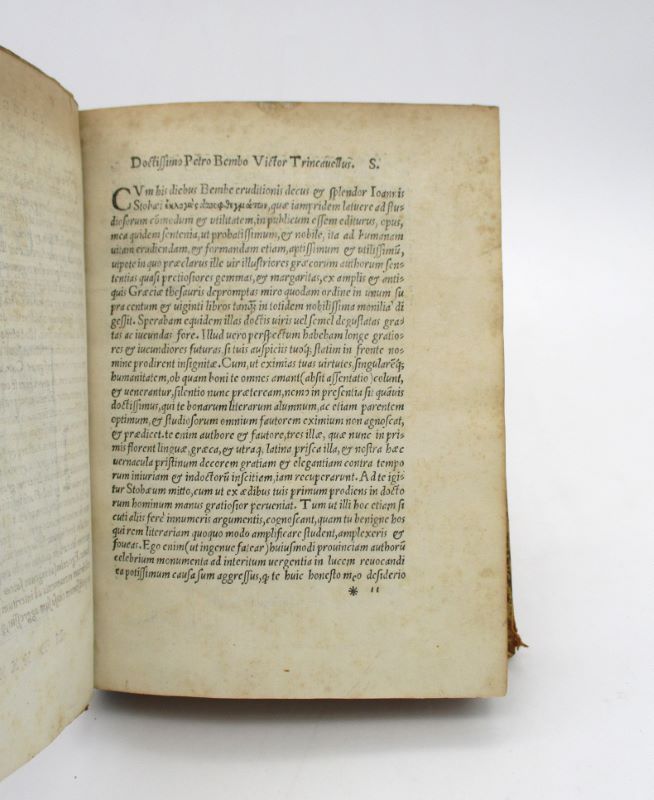 Doctissimo Petro Bembo Victor Trincauellus. S.
CVm his diebus Bembe eruditionis decus & splendor Ioannis
Stobæi ἐκλογὰς ἀποφθεγμάτων, quæ iampridem latuere ad stu
diosorum cōmodum & vtilitatem, in publicum essem editurus, opus,
mea quidem sentenia, ut probatissimum, & nobile, ita ad humanam
uitam erudiendam, & formandam etiam, aptissimum & utilissimū,
utpote in quo præclarus ille uir illustriores græcorum authorum sen-
tentias quasi pretiosiores gemmas, & margaritas, ex amplis & anti-
quis Græciæ thesauris depromptas miro quodam ordine in unum su
pra centum & uiginti libros tanq̄ in totidem nobilissima monilia di
gessit. Sperabam equidem illas doctis uiris uel semel degustatas gra
tas ac iucundas fore. Illud uero perspectum habebam longe gratio-
res & iucundiores futuras, si tuis auspiciis tuoq; statim in fronte no-
mine prodirent insignitæ. Cum, ut eximias tuas uirtutes, singularēq;
humanitatem, ob quam boni te omnes amant (absit assentatio) colunt,
& uenerantur, silentio nunc præteream, nemo in presentia sit quāuis
doctissimus, qui te bonarum literarum alumnum, ac etiam parentem
optimum, & studiosorum omnium fautorem eximium non agnoscat,
& prædicet. te enim authore & fautore, tres illæ, quæ nunc in pri-
mis florent linguæ, græca, & utraq. latina, prisca illa, & nostra hæc
uernacula pristinum decorem gratiam & elegantiam contra tempo
rum iniuriam & indoctorū inscitiam, iam recuperarunt. Ad te igi-
tur Stobæum mitto, cum ut ex ædibus tuis primum prodiens in docto
rum hominum manus gratiosior perueniat. Tum ut illi hoc etiam si
cuti aliis ferè innumeris argumentis, cognoscant, quam tu benigne hos
qui rem literariam quoquo modo amplificare student, amplexeris &
foueas. Ego enim (ut ingenue fatear) huiusmodi prouinciam authorū
celebrium monumenta ad interitum uergentia in lucem reuocandi
ea potissimum causa sum aggressus, q̄ te huic honesto meo desiderio
* ii